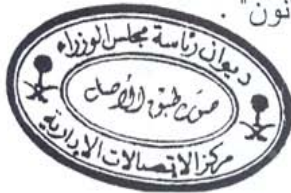 نون" .
ديوان رئاسة مجلس الوزراء
صورة طبق الأصل
مركز الاتصالات الإدارية